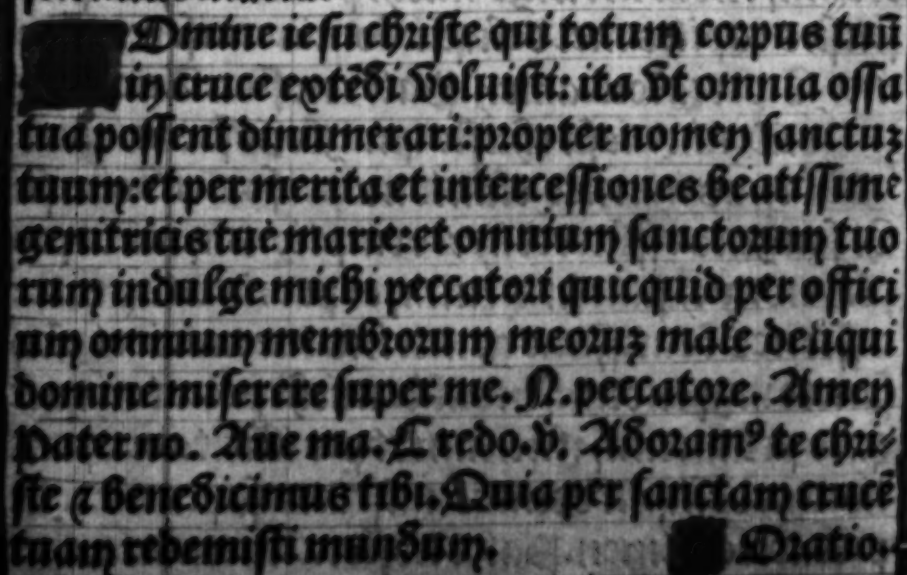 Domine iesu christe qui totum corpus tuū
in cruce extēdi voluisti: ita vt omnia ossa
tua possent dinumerari: propter nomen sanctuꝫ
tuum: et per merita et intercessiones beatissime
genitricis tue marie: et omnium sanctorum tuo
rum indulge michi peccatori quicquid per offici
um omnium membrorum meoruꝫ male deliqui
domine miserere super me. N. peccatore. Amen
Pater no. Aue ma. Credo. v̄. Adoramꝰ te chri⸗
ste ⁊ benedicimus tibi. Quia per sanctam crucē
tuam redemisti mundum. Oratio.